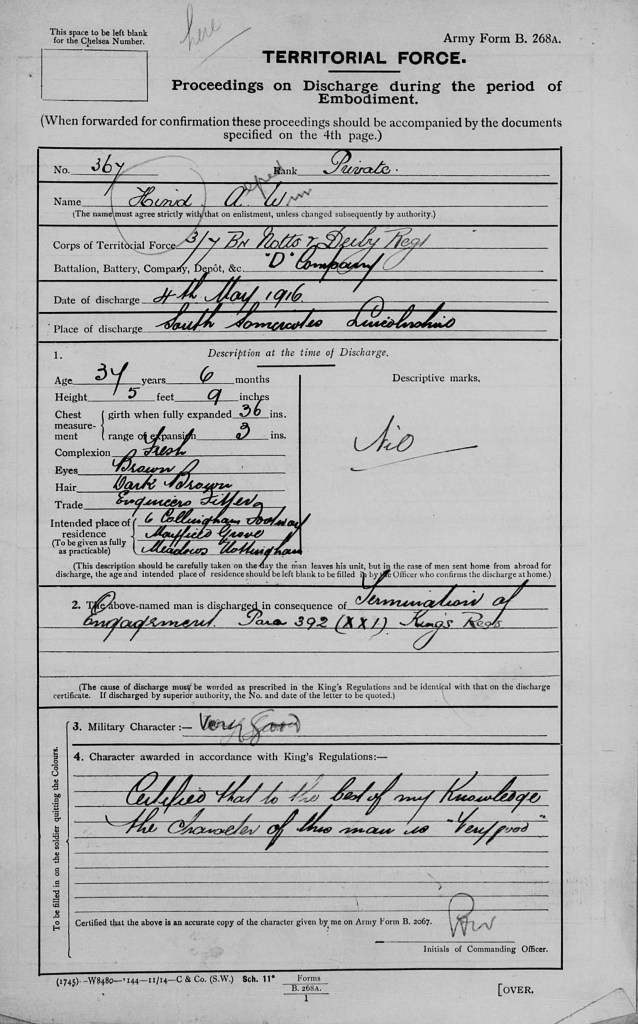 This space to be left blank
for the Chelsea Number.
here
Army Form B. 268A.
TERRITORIAL FORCE.
Proceedings on Discharge during the period of
Embodiment.
(When forwarded for confirmation these proceedings should be accompanied by the documents
specified on the 4th page.)
No. 367 Rank Private.
Name Hind. A. Wm
(The name must agree strictly with that on enlistment, unless changed subsequently by authority.)
Corps of Territorial Force 3/7 Bn Notts & Derby Regt
Battalion, Battery, Company, Depôt, &c. "D" Company
Date of discharge 4th May 1916
Place of discharge South Somercotes Lincolnshire
1. Description at the time of Discharge.
Age 37 years 6 months
Height 5 feet 9 inches
Chest measure-ment girth when fully expanded 36 ins.
range of expansion 3 ins.
Complexion Fresh
Eyes Brown
Hair Dark Brown
Trade Engineers Fitter
Intended place of residence 6 Collingham Footway
(To be given as fully as practicable) Mayfield Grove
Meadows Nottingham
Descriptive marks.
Nil
(This description should be carefully taken on the day the man leaves his unit, but in the case of men sent home from abroad for
discharge, the age and intended place of residence should be left blank to be filled in by the Officer who confirms the discharge at home.)
2. The above-named man is discharged in consequence of Termination of
Engagement. Para 392 (XXI) King's Regs
(The cause of discharge must be worded as prescribed in the King's Regulations and be identical with that on the discharge
certificate. If discharged by superior authority, the No. and date of the letter to be quoted.)
To be filled in on the soldier quitting the Colours.
3. Military Character :— Very good
4. Character awarded in accordance with King's Regulations:—
Certified that to the best of my Knowledge
the character of this man is "Very good"
Certified that the above is an accurate copy of the character given by me on Army Form B. 2067.
Initials of Commanding Officer.
(1745) W8480—144—11/14—C & Co. (S.W.) Sch. 11*
Forms
B. 268A.
1
[OVER.